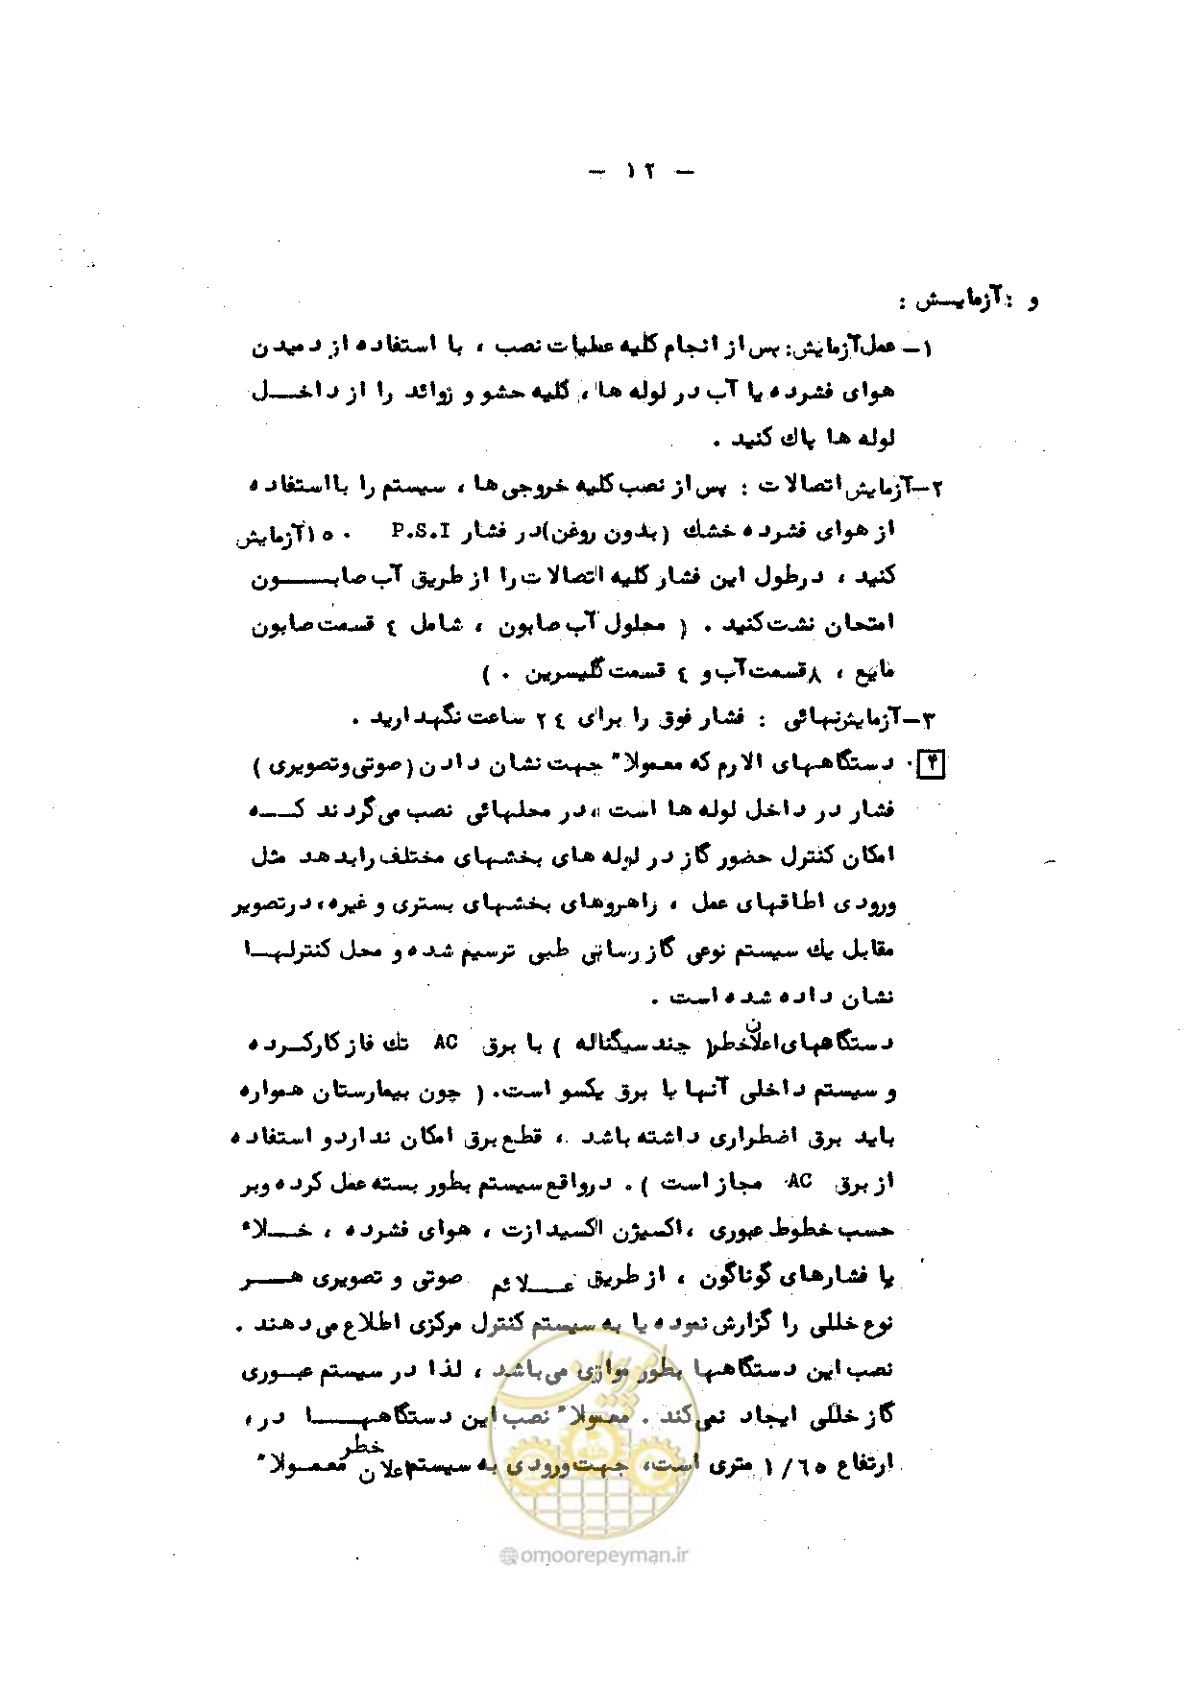 - ۱۲ -
و : آزمایش :
۱- عمل آزمایش: پس از انجام کلیه عملیات نصب ، با استفاده از دمیدن
هوای فشرده یا آب در لوله ها ، کلیه حشو و زوائد را از داخل
لوله ها پاک کنید .
۲- آزمایش اتصالات : پس از نصب کلیه خروجی ها ، سیستم را با استفاده
از هوای فشرده خشک (بدون روغن) در فشار P.S.I ۱۵۰ آزمایش
کنید ، در طول این فشار کلیه اتصالات را از طریق آب صابون
امتحان نشت کنید . ( محلول آب صابون ، شامل ٤ قسمت صابون
مایع ، ۸ قسمت آب و ٤ قسمت گلیسرین . )
۳- آزمایش نهائی : فشار فوق را برای ۲٤ ساعت نگهدارید .
۴. دستگاههای الارم که معمولا" جهت نشان دادن (صوتی و تصویری )
فشار در داخل لوله ها است ، در محلهائی نصب می گردند که
امکان کنترل حضور گاز در لوله های بخشهای مختلف را بدهد مثل
ورودی اطاقهای عمل ، راهروهای بخشهای بستری و غیره ، در تصویر
مقابل یک سیستم نوعی گاز رسانی طبی ترسیم شده و محل کنترلها
نشان داده شده است .
دستگاههای اعلان خطر( چند سیگناله ) با برق AC تک فاز کار کرده
و سیستم داخلی آنها با برق یکسو است. ( چون بیمارستان همواره
باید برق اضطراری داشته باشد ، قطع برق امکان ندارد و استفاده
از برق AC مجاز است ) . در واقع سیستم بطور بسته عمل کرده و بر
حسب خطوط عبوری ، اکسیژن اکسیدازت ، هوای فشرده ، خلاء
یا فشارهای گوناگون ، از طریق علائم صوتی و تصویری هر
نوع خللی را گزارش نموده یا به سیستم کنترل مرکزی اطلاع می دهند .
نصب این دستگاهها بطور موازی می باشد ، لذا در سیستم عبوری
گاز خللی ایجاد نمی کند . معمولا" نصب این دستگاهها در ،
ارتفاع ۱/٦۵ متری است، جهت ورودی به سیستم اعلان خطر معمولا"
امور پیمان
@omoorepeyman.ir